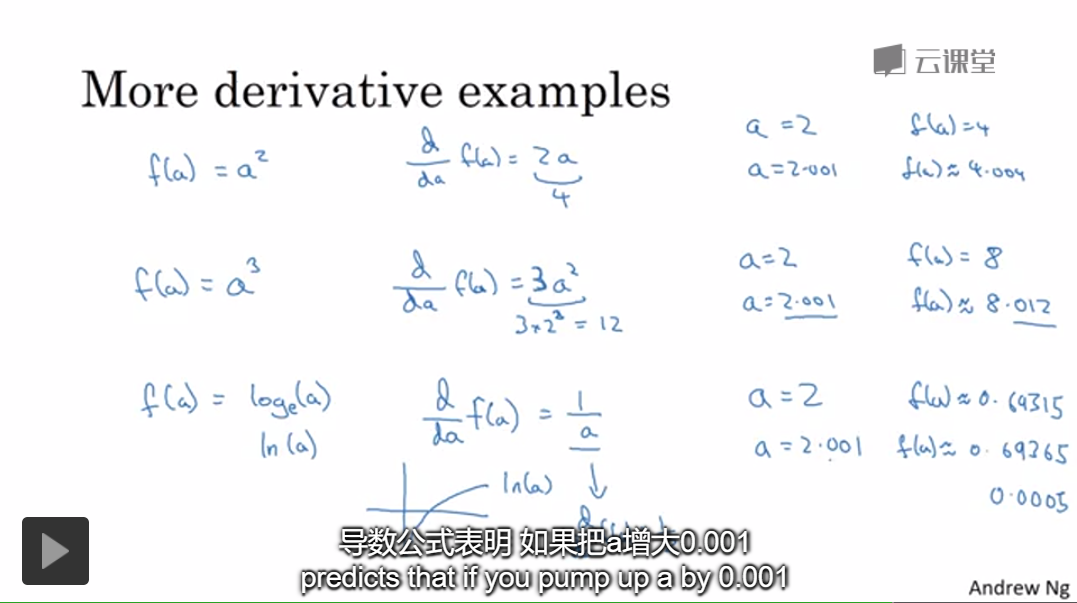 云课堂
More derivative examples
f(a) = a² d/da f(a) = 2a a = 2 f(a) = 4
4 a = 2.001 f(a) ≈ 4.004
f(a) = a³ d/da f(a) = 3a² a = 2 f(a) = 8
3×2² = 12 a = 2.001 f(a) ≈ 8.012
f(a) = logₑ(a) d/da f(a) = 1/a a = 2 f(a) ≈ 0.69315
ln(a) a = 2.001 f(a) ≈ 0.69365
ln(a) 0.0005
导数公式表明 如果把a增大0.001
predicts that if you pump up a by 0.001
Andrew Ng